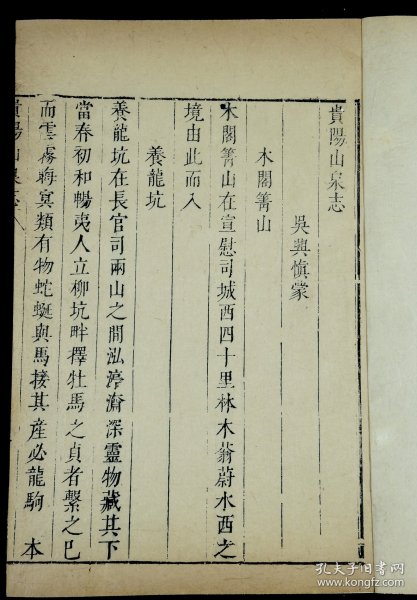 貴陽山泉志
吳興慎蒙
木閣箐山
木閣箐山在宣慰司城西四十里林木蓊蔚水西之
境由此而入
養龍坑
養龍坑在長官司兩山之間泓渟渀深靈物藏其下
當春初和暢夷人立柳坑畔擇牡馬之貞者繫之已
而雲霧晦冥類有物蛇蜒與馬接其產必龍駒 本
貴陽山泉志
孔夫子旧书网
www.kongfz.com